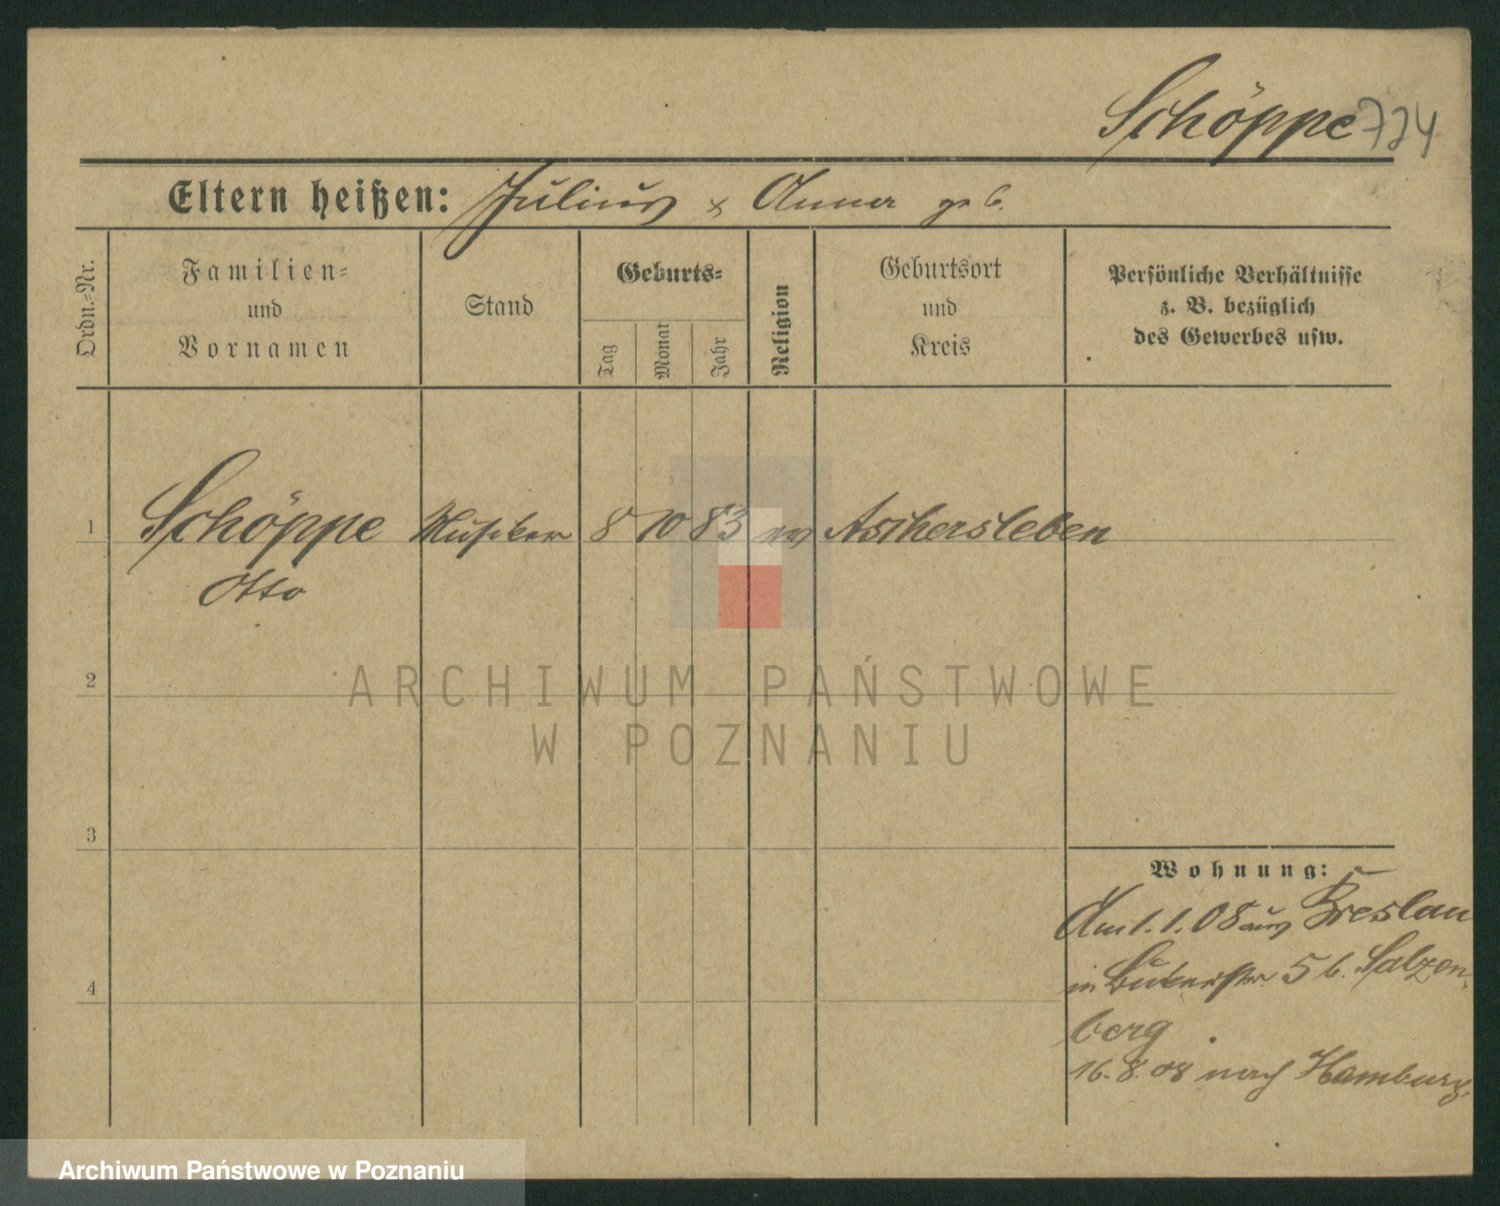 Schöppe 724
Eltern heißen: Julius & Anna geb.
Ordn.-Nr.
Familien-
und
Vornamen
Stand
Geburts-
Tag
Monat
Jahr
Religion
Geburtsort
und
Kreis
Persönliche Verhältnisse
z. B. bezüglich
des Gewerbes usw.
1 Schöppe Musiker 8 10 83 ev Aschersleben
Otto
2
3
4
Wohnung:
Am 1. 1. 08 aus Breslau
in 5 b. Salzen-
berg
16. 8. 08 nach Hamburg.
ARCHIWUM PAŃSTWOWE
W POZNANIU
Archiwum Państwowe w Poznaniu